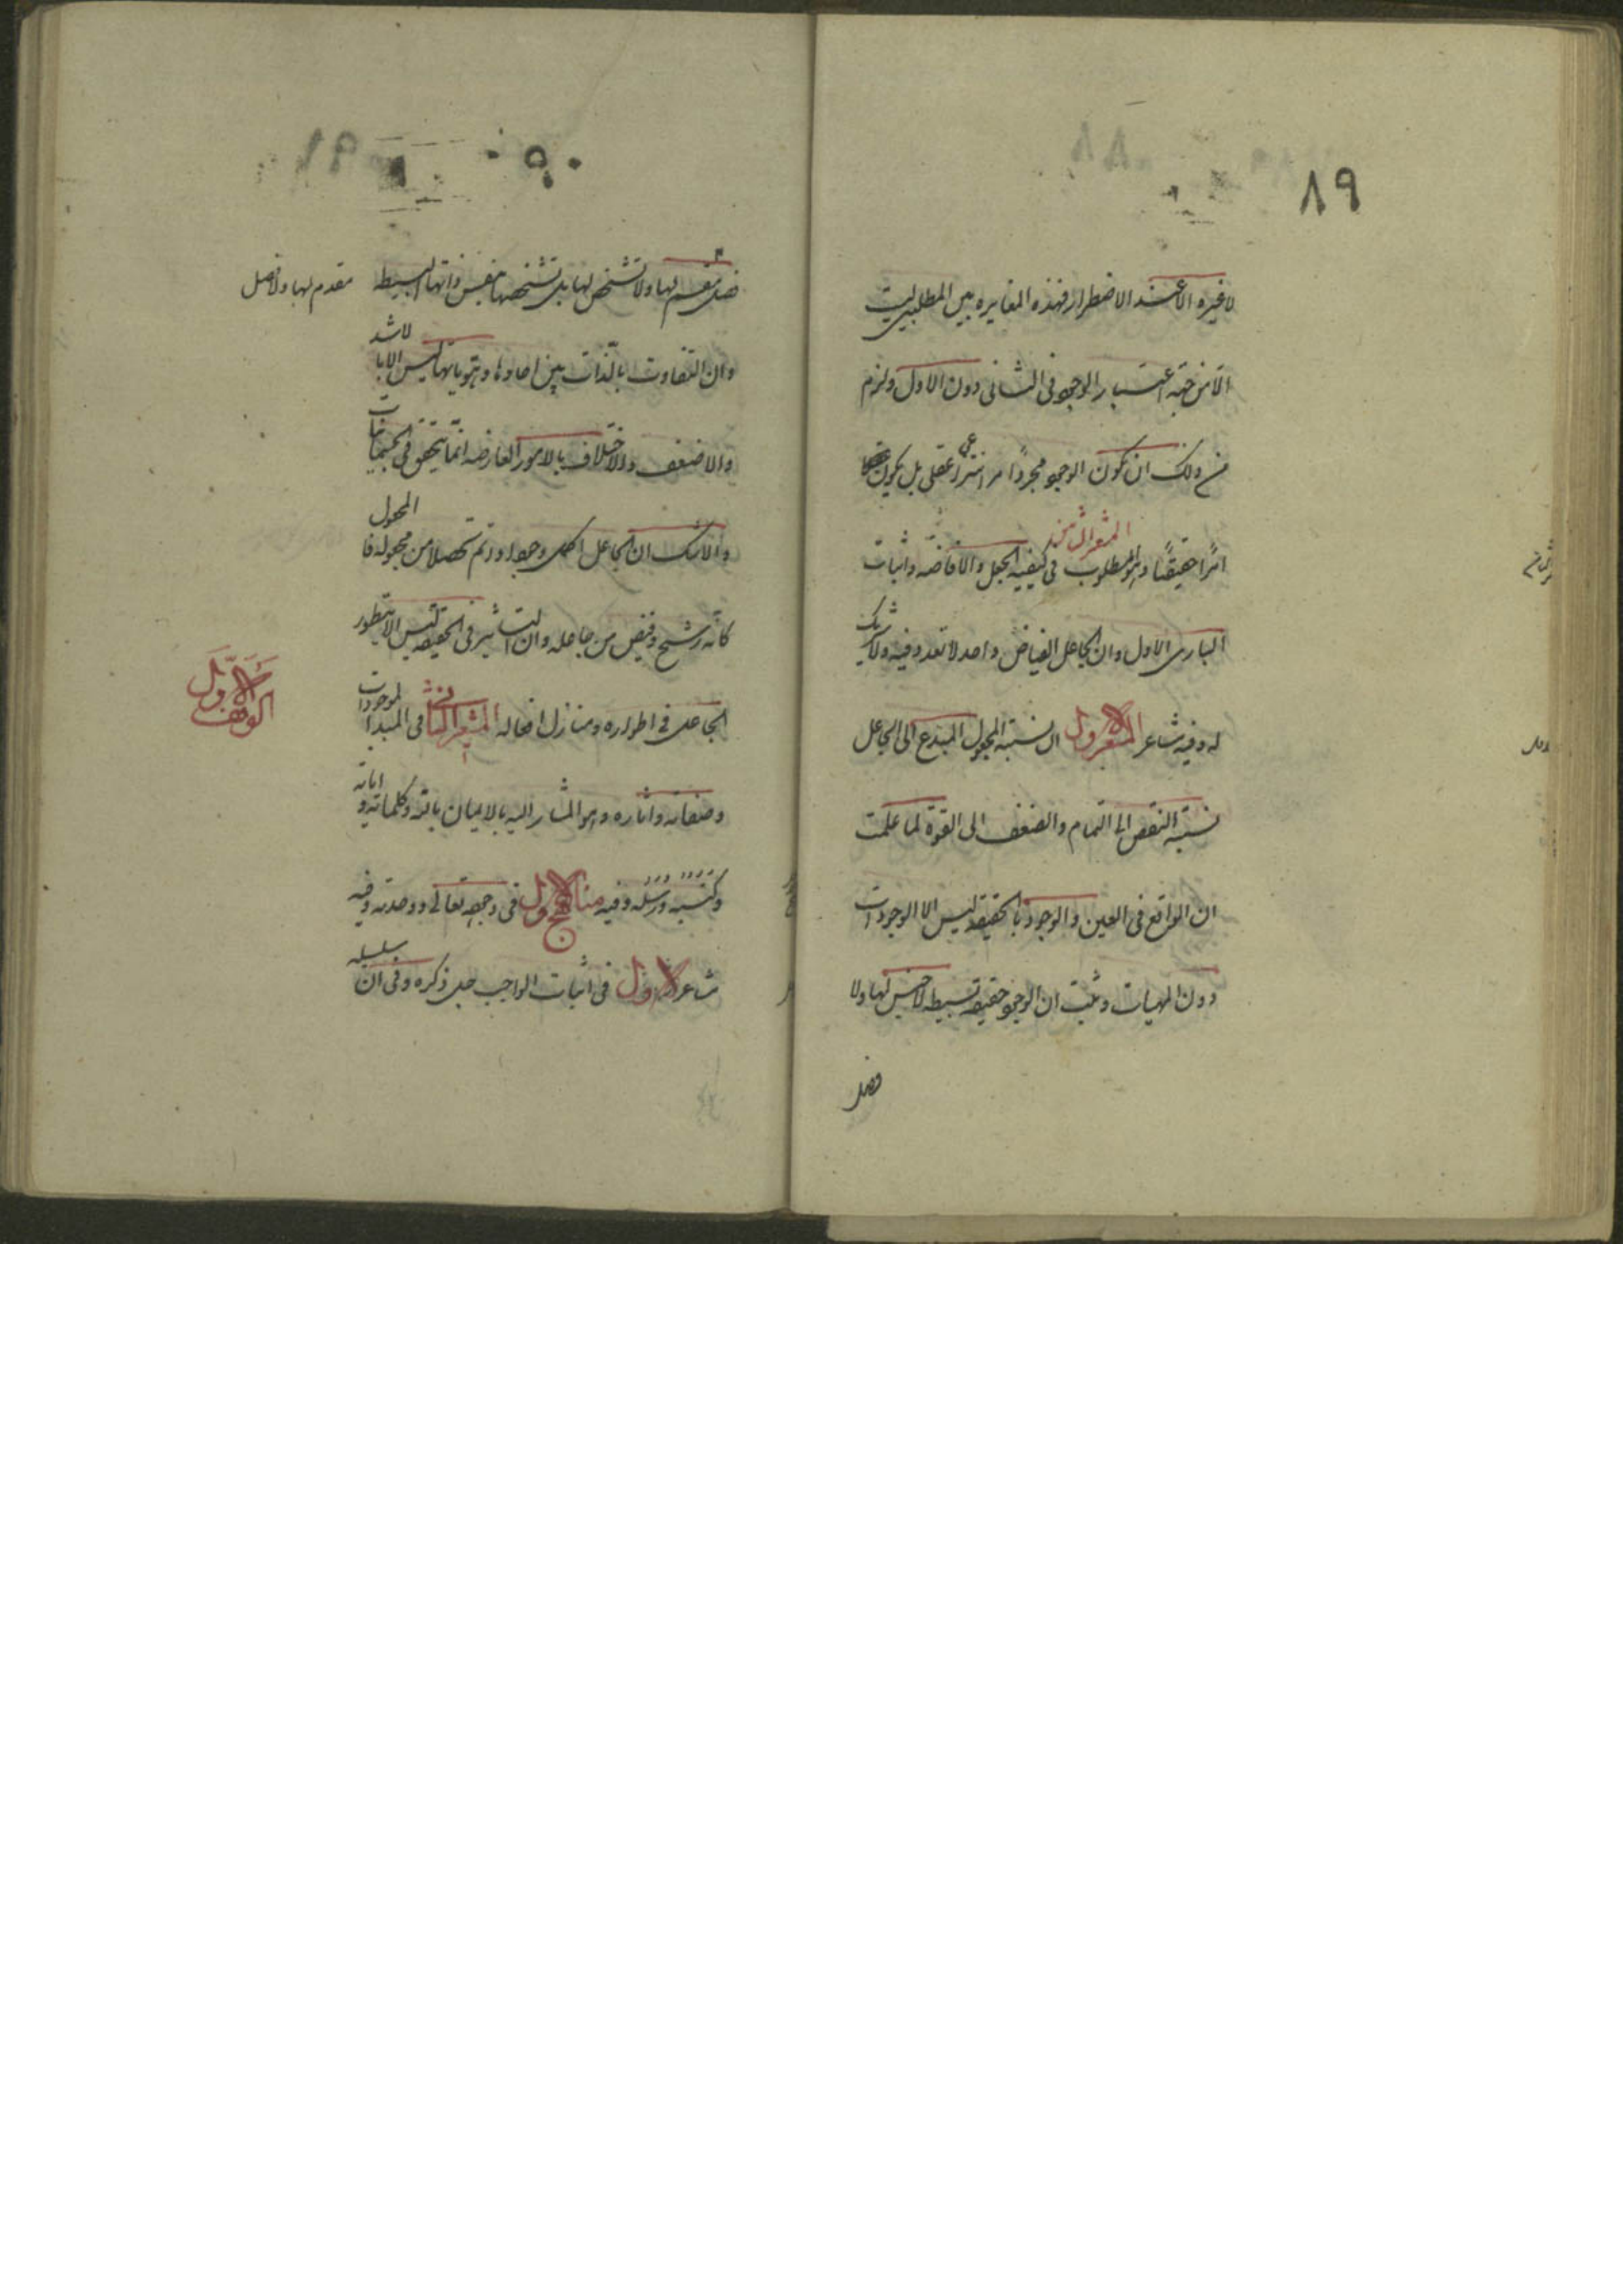 ٨٩
لا غيره الا عند الاضطرار فهذه المغايره بين المطلبين ليت
الا من جهة اعتبار الوجود فى الثانى دون الاول ولزم
من ذلك ان يكون الوجود مجردا مر انتزاعى عقلى بل يكون
امرا حقيقيا وهو المطلوب فى كيفية الجعل والافاضه واثبات
المشعر الثامن
البارى الاول وان الجاعل الفياض واحد لا تعدد فيه ولا شريك
له وفيه مشاعر المشعر الاول ان نسبة المجعول المبدع الى الجاعل
نسبة النقص الى التمام والضعف الى القوة لما علمت
ان الواقع فى العين والوجود بالحقيقه ليس الا الوجودات
دون المهيات وثبت ان الوجود حقيقه بسيطه لا جنس لها ولا
فصل
٩٠
فصل مقسم لها ولا تشخص لها بل تشخصها بنفس ذاتها البسيطه
مقدم لها ولا فصل
وان التفاوت بالذات بين احادها وهوياتها ليس الا بالاشد
والاضعف والاختلاف بالامور العارضه انما يتحقق فى الجسمانيات
ولا شك ان الجاعل اكمل وجودا واتم تحصلا من مجعوله فالمجعول
كانه رشح وفيض من جاعله وان التاثير فى الحقيقه ليس الا بتطور
الجاعل فى اطواره ومنازل افعاله المشعر الثانى فى المبدا الموجودات
وصفاته واثاره وهو المشار اليه بالايمان بالله وكلماته واياته
وكتبه ورسله وفيه مناهج الاول فى وجوده تعالى ووحدته وفيه
مشاعر الاول فى اثبات الواجب جل ذكره وفى ان سلسله